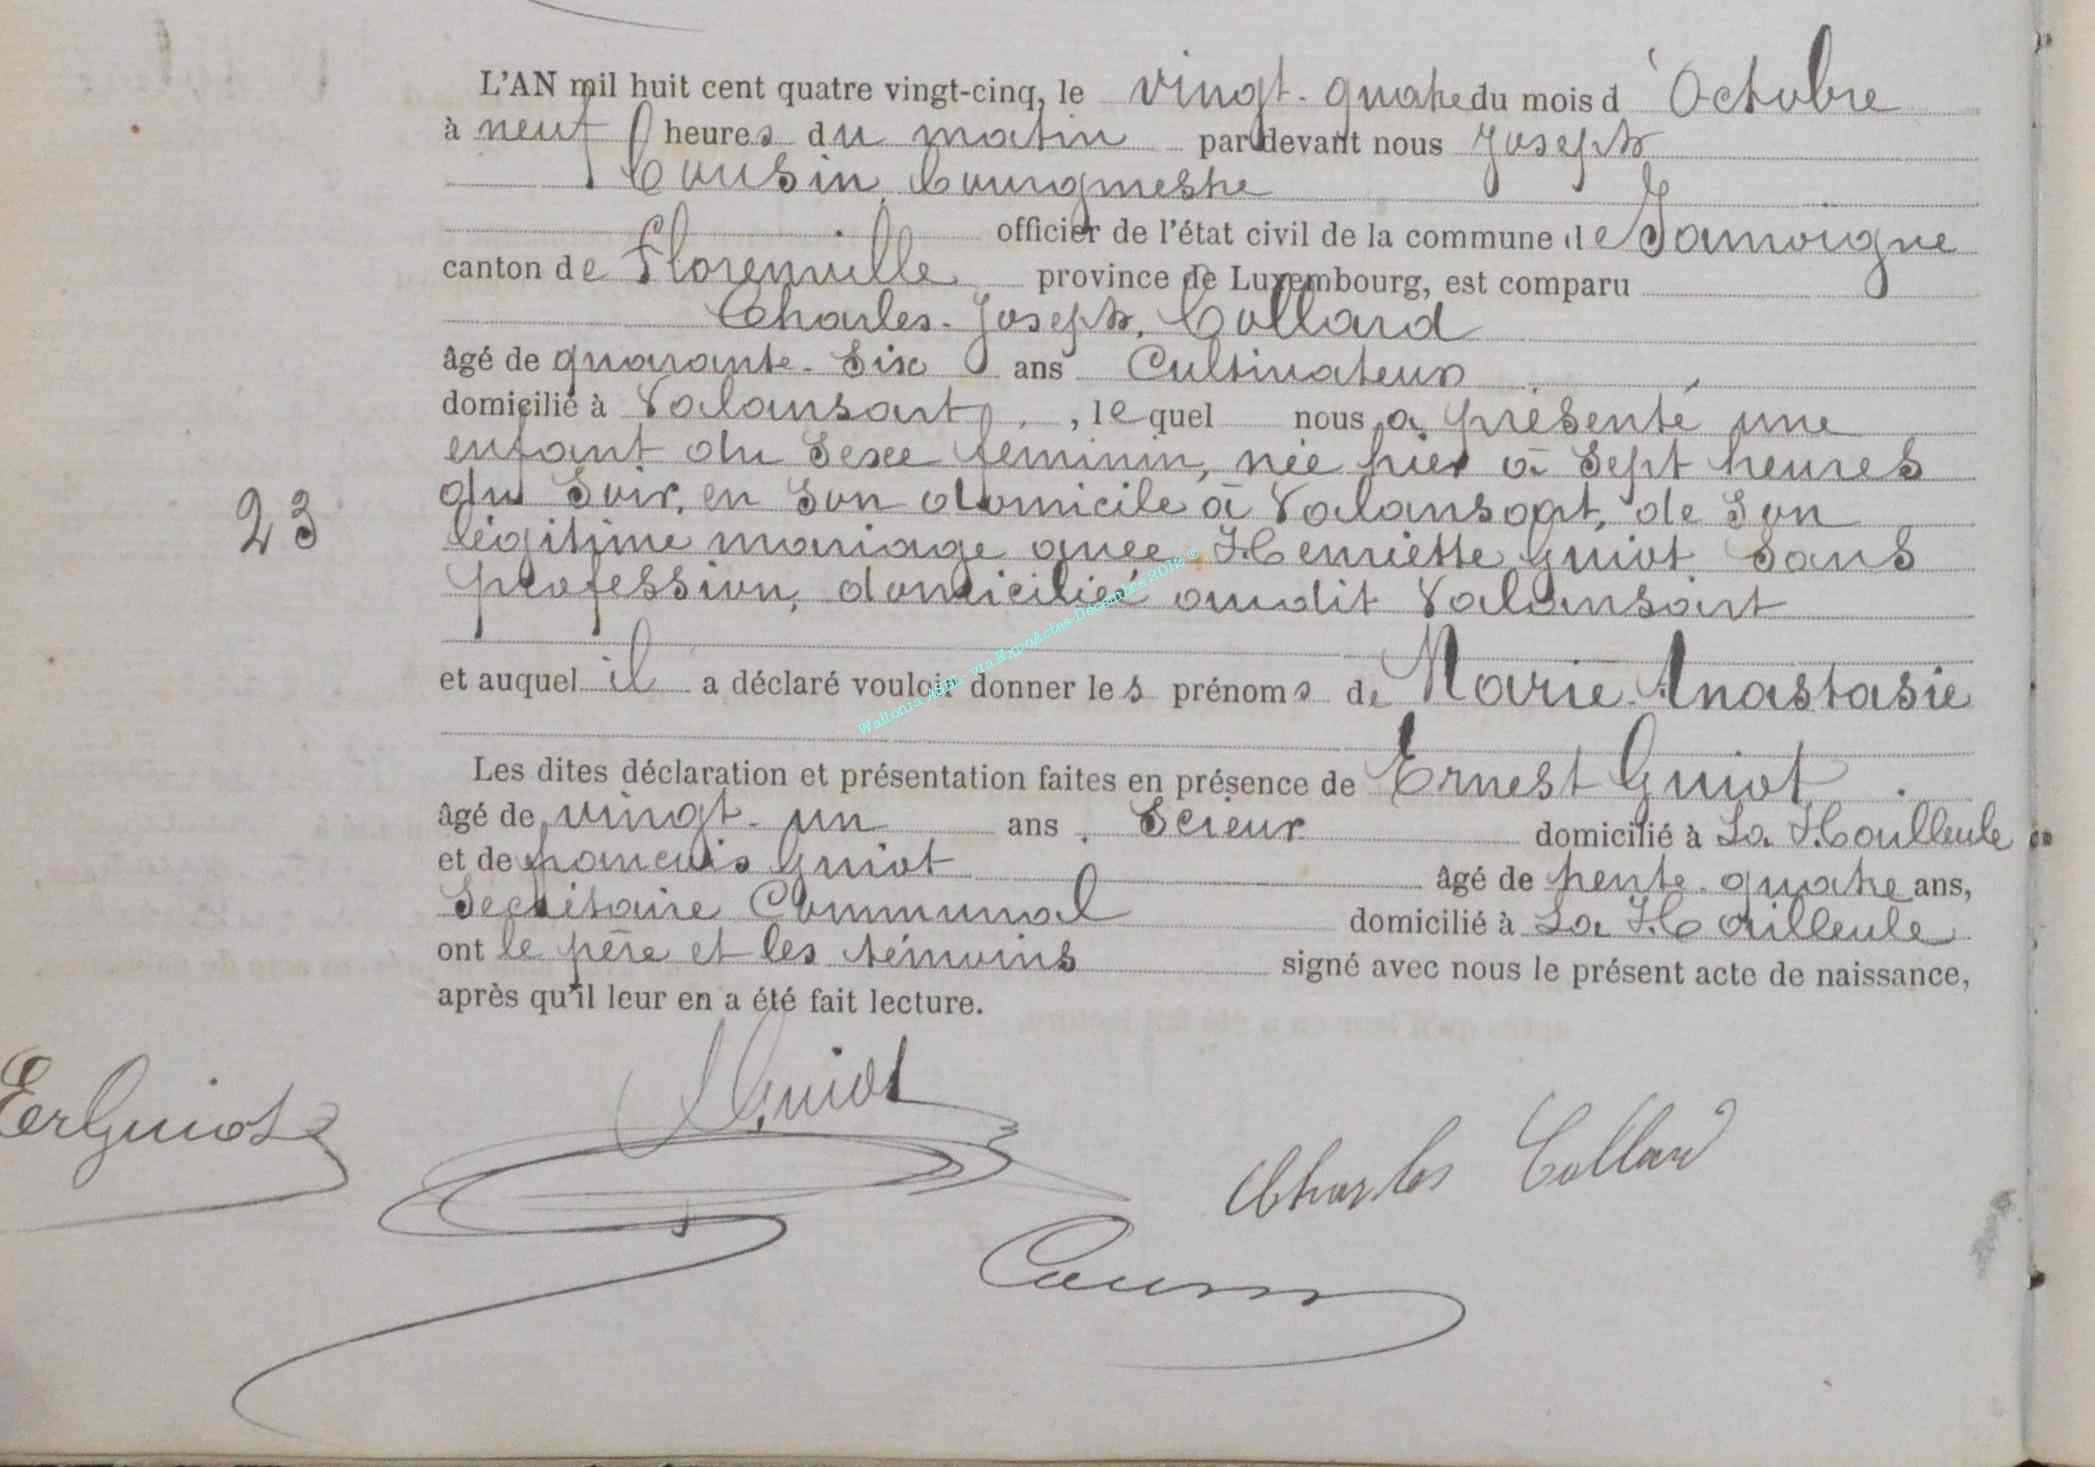 L'AN mil huit cent quatre vingt-cinq, le vingt-quatre du mois d'Octobre
à neuf heures du matin par devant nous Joseph
Cousin, bourgmestre
officier de l'état civil de la commune de Jamoigne
canton de Florenville province de Luxembourg, est comparu
Charles-Joseph, Collard
âgé de quarante-six ans Cultivateur
domicilié à Valansart, lequel nous a présenté une
enfant du sexe féminin, née hier à sept heures
du soir, en son domicile à Valansart, de son
23 légitime mariage avec Henriette Guiot sans
profession, domiciliée audit Valansart
et auquel il a déclaré vouloir donner les prénoms de Marie-Anastasie
Wallonia ASBL via ExpoActes-Décembre 2012 ©
Les dites déclaration et présentation faites en présence de Ernest Guiot
âgé de vingt-un ans Scieur domicilié à La Hailleule
et de françois Guiot âgé de trente-quatre ans,
Secrétaire Communal domicilié à La Hailleule
ont le père et les témoins signé avec nous le présent acte de naissance,
après qu'il leur en a été fait lecture.
ErGuiot Guiot
Charles Collard
Cousin